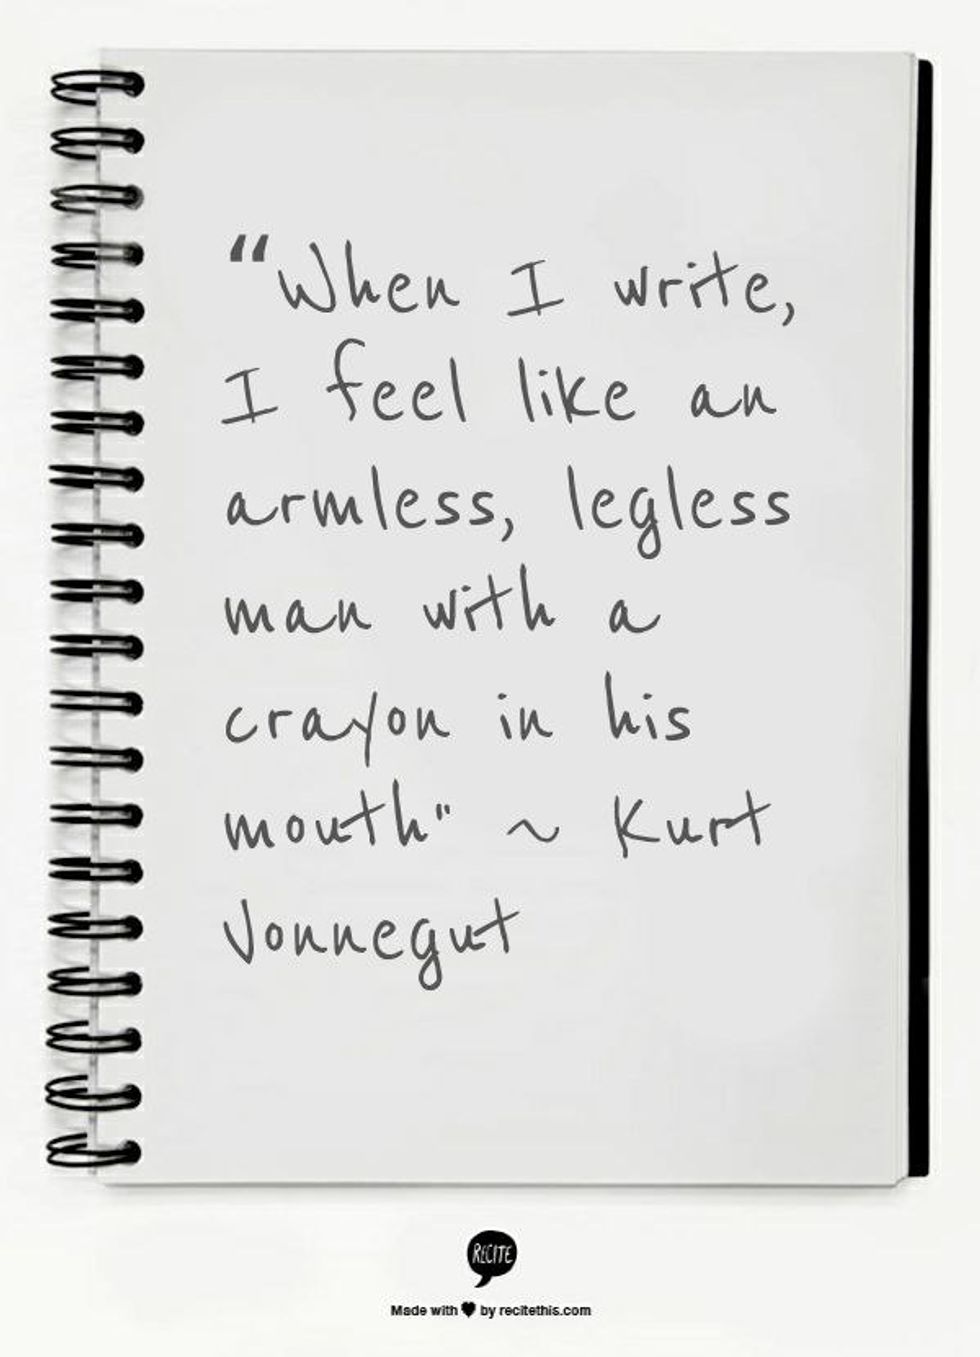 “When I write,
I feel like an
armless, legless
man with a
crayon in his
mouth" ~ Kurt
Vonnegut
RECITE
Made with ♥ by recitethis.com